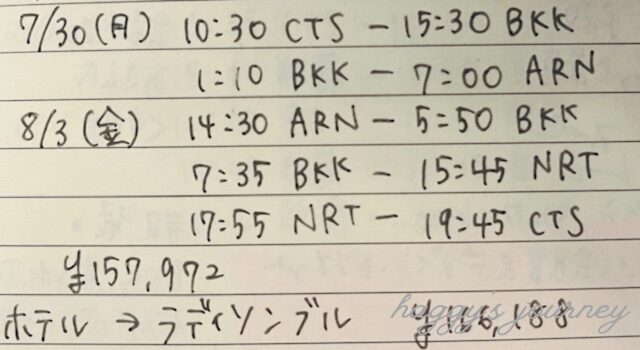 7/30(月) 10:30 CTS - 15:30 BKK
1:10 BKK - 7:00 ARN
8/3(金) 14:30 ARN - 5:50 BKK
7:35 BKK - 15:45 NRT
17:55 NRT - 19:45 CTS
¥157,972
ホテル → ラディソンブル
huggy's journey